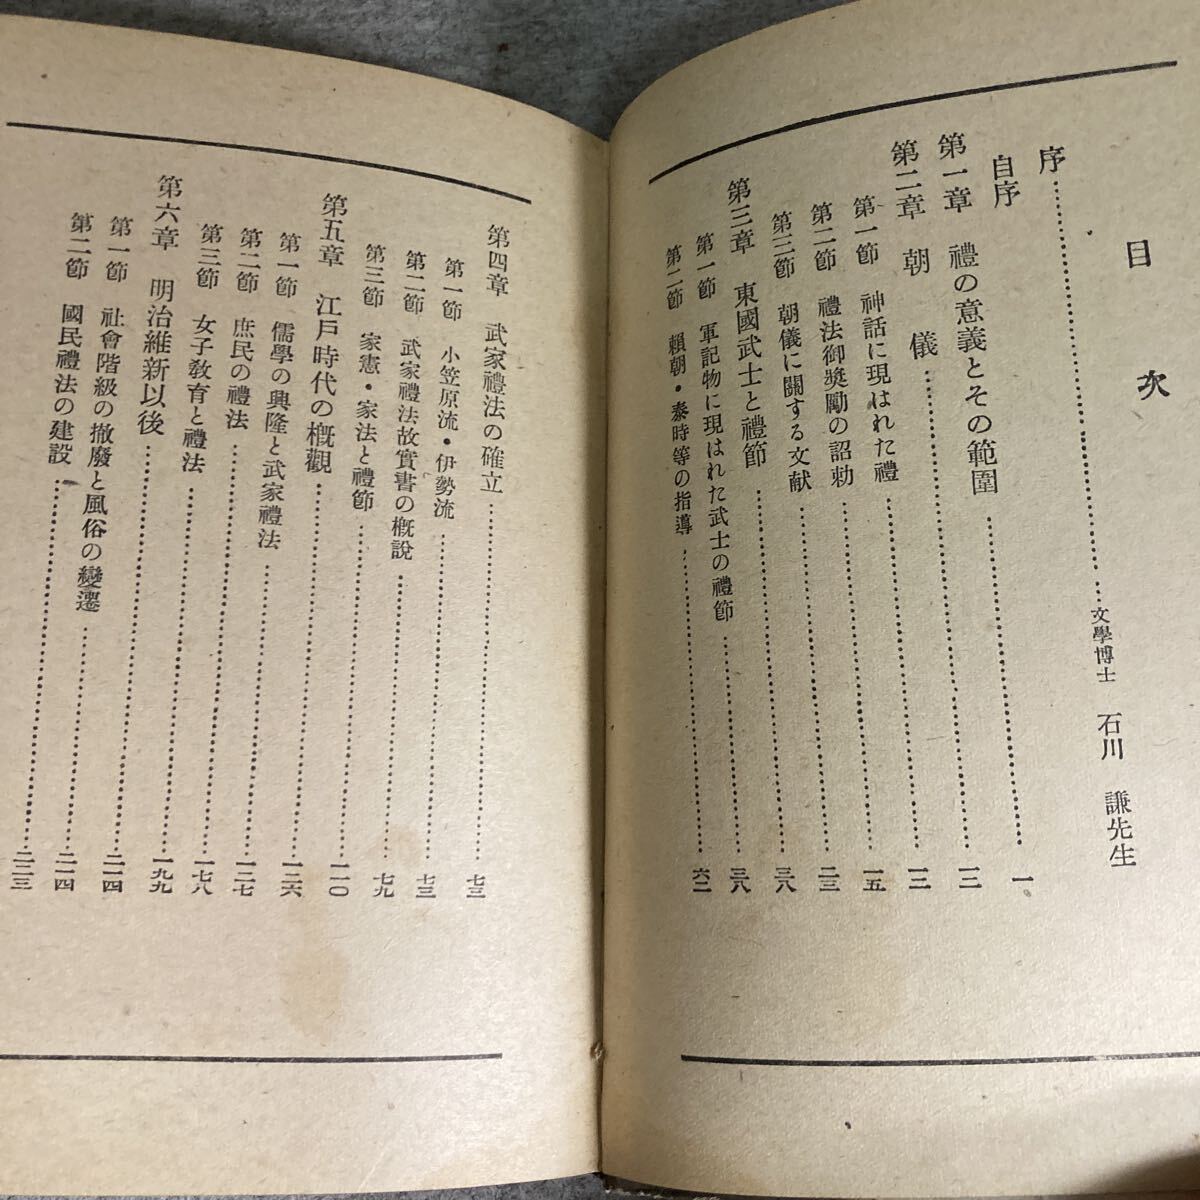 目次
序……文學博士 石川 謙先生
自序
第一章 禮の意義とその範圍……一
第二章 朝儀……三
第一節 神話に現はれた禮……三
第二節 禮法御奬勵の詔勅……一五
第三節 朝儀に關する文献……二三
第三章 東國武士と禮節……三八
第一節 軍記物に現はれた武士の禮節……三八
第二節 賴朝・泰時等の指導……六二
第四章 武家禮法の確立……七三
第一節 小笠原流・伊勢流……七三
第二節 武家禮法故實書の概說……七九
第三節 家憲・家法と禮節……一一〇
第五章 江戶時代の概觀……一二六
第一節 儒學の興隆と武家禮法……一二七
第二節 庶民の禮法……一七八
第三節 女子敎育と禮法……一九九
第六章 明治維新以後……二一四
第一節 社會階級の撤廢と風俗の變遷……二一四
第二節 國民禮法の建設……二二三